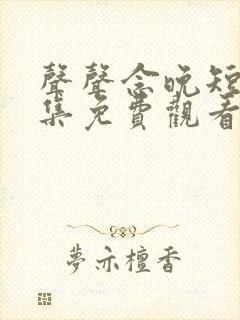 聲聲念晚短
集免費觀看
夢亦檀香